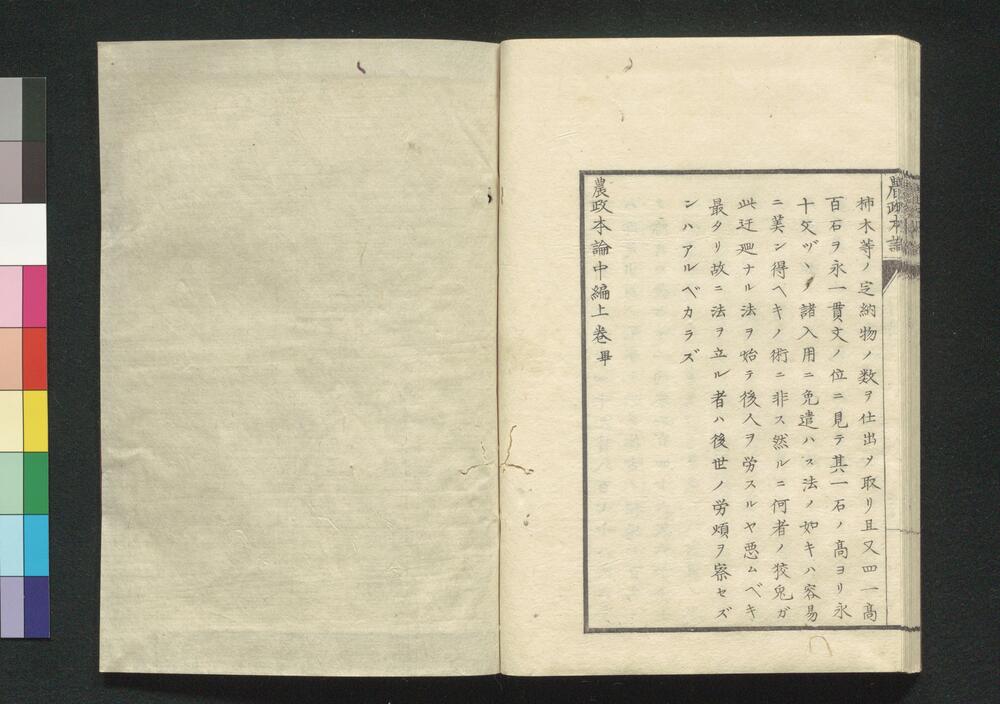 農政本論
柿木等ノ定納物ノ数ヲ仕出ヲ取リ且又四一高
百石ヲ永一貫文ノ位ニ見テ其一石ノ高ヨリ永
十文ヅヽヲ諸入用ニ免遣ハス法ノ如キハ容易
ニ美ン得ヘキノ術ニ非ス然ルニ何者ノ狡兎ガ
此迂廻ナル法ヲ始テ後人ヲ労スルヤ悪ムベキ
最タリ故ニ法ヲ立ル者ハ後世ノ労煩ヲ察セズ
ンハアルベカラズ
農政本論中編上巻畢